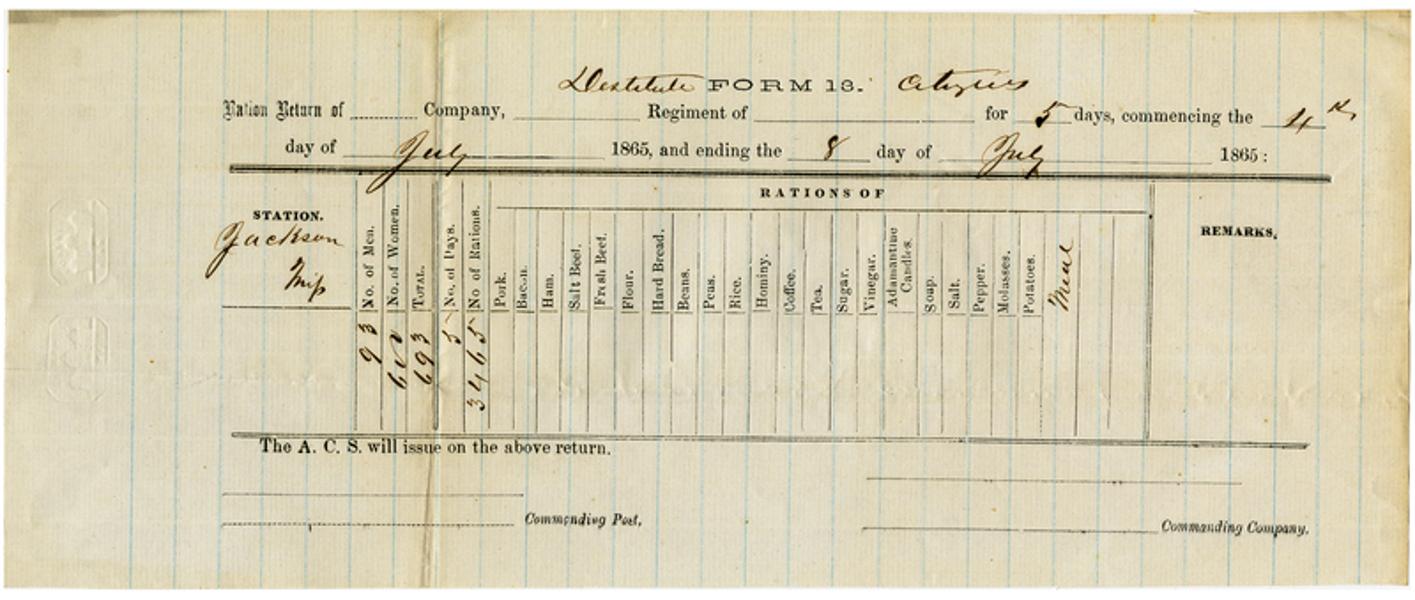 Destitute FORM 13. Citizens
Ration Return of Company, Regiment of for 5 days, commencing the 4th
day of July 1865, and ending the 8 day of July 1865:
RATIONS OF
STATION.
Jackson
Miss
No. of Men.
No. of Women.
TOTAL.
No. of Days.
No of Rations.
Pork.
Bacon.
Ham.
Salt Beef.
Fresh Beef.
Flour.
Hard Bread.
Beans.
Peas.
Rice.
Hominy.
Coffee.
Tea.
Sugar.
Vinegar.
Adamantine
Candles.
Soap.
Salt.
Pepper.
Molasses.
Potatoes.
Meal
REMARKS.
93
600
693
5
3465
The A. C. S. will issue on the above return.
Commending Post.
Commanding Company.